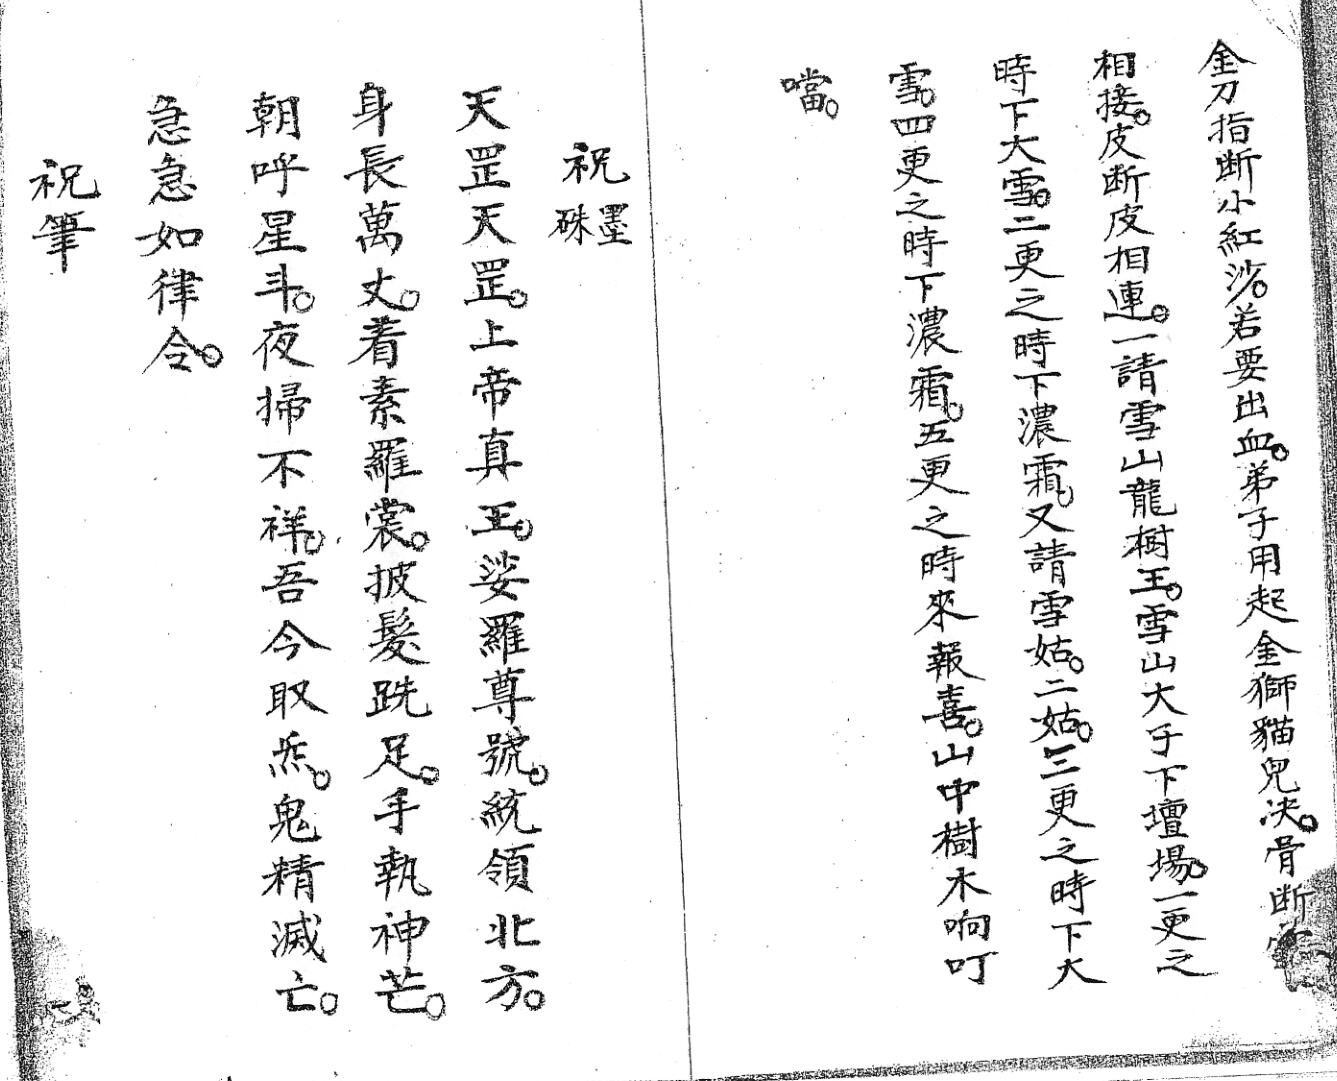 金刀指断小紅沙。若要出血。弟子用起金獅猫兒決。骨断
相接。皮断皮相連。一請雪山龍樹王。雪山大子下壇場。一更之
時下大雪。二更之時下濃霜。又請雪姑。二姑。三更之時下大
雪。四更之時下濃霜。五更之時來報喜。山中樹木响叮
噹。
祝墨硃
天罡天罡。上帝真王。娑羅尊號。統領北方。
身長萬丈。着素羅裳。披髮跣足。手執神芒。
朝呼星斗。夜掃不祥。吾今取炁。鬼精滅亡。
急急如律令。
祝筆